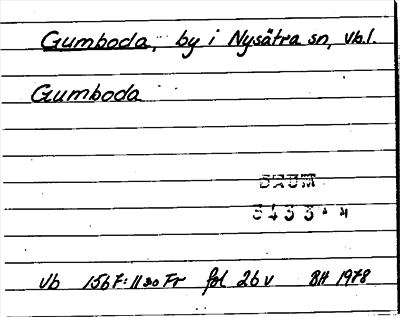 Gumboda, by i Nysätra sn, vb.l.
Gumboda
DAUM
Vb 1567:11 20 Fr fol 26 v BH 1978